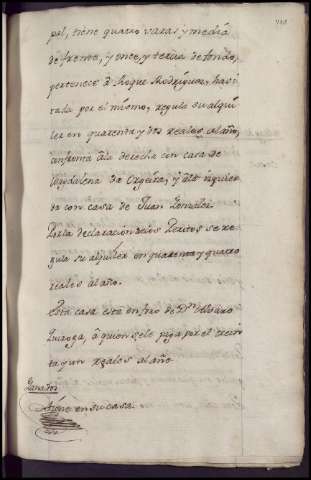 pal, tiene quatro varas y media
de frente, y once, y tercia de fondo,
pertenece a Roque Rodriguez, havi
tada por el mismo, regula su alqui
ler en quarenta y dos reales al año,
confronta a la derecha con casa de
Magdalena da Orgeira, y a la izquier
da con casa de Juan Gonzalez
Por la declaracion de los Peritos se re
gula su alquiler en quarenta y quatro
reales al año.
Esta casa esta en foro de Dn Alvaro
Quiroga, a quien se le paga por el trein
ta y un reales al año
Ganados
Tiene en su casa.